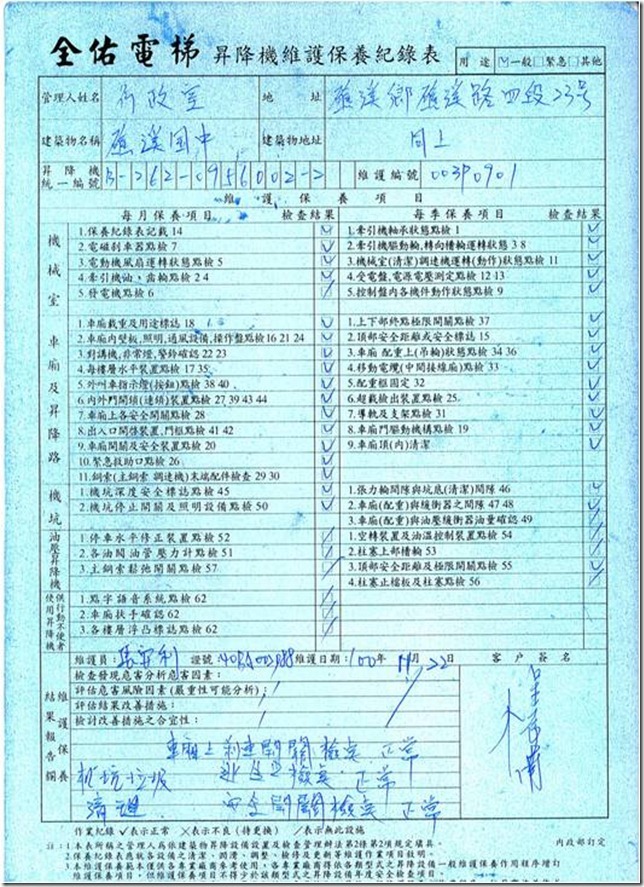 全佑電梯 昇降機維護保養紀錄表 用途 ☑一般□緊急□其他
管理人姓名 行政室 地址 礁溪鄉礁溪路四段23號
建築物名稱 礁溪國中 建築物地址 同上
昇降機統一編號 維護編號 003P0901
維護保養項目
每月保養項目 檢查結果 每季保養項目 檢查結果
機械室
1.保養紀錄表記載 14 ✓ 1.牽引機軸承狀態點檢 1 ✓
2.電磁剎車器點檢 7 ✓ 2.牽引機驅動輪,轉向槽輪運轉狀態 3 8 ✓
3.電動機風扇運轉狀態點檢 5 ✓ 3.機械室(清潔)調速機運轉(動作)狀態點檢 11 ✓
4.牽引機油、齒輪點檢 2 4 ✓ 4.受電盤,電源電壓測定點檢 12 13 ✓
5.發電機點檢 6 / 5.控制盤內各機件動作狀態點檢 9 ✓
車廂及昇降路
1.車廂載重及用途標誌 18 ✓ 1.上下部終點極限開關點檢 37 ✓
2.車廂內壁板,照明,通風設備,操作盤點檢 16 21 24 ✓ 2.頂部安全距離或安全標誌 15 ✓
3.對講機,非常燈,警鈴確認 22 23 ✓ 3.車廂 配重上(吊輪)狀態點檢 34 36 ✓
4.每樓層水平裝置點檢 17 35 ✓ 4.移動電纜(中間接線廂)點檢 33 ✓
5.外叫車指示燈(按鈕)點檢 38 40 ✓ 5.配重框固定 32 ✓
6.內外門開鎖(連鎖)裝置點檢 27 39 43 44 ✓ 6.超載檢出裝置點檢 25 ✓
7.車廂上各安全開關點檢 28 ✓ 7.導軌及支架點檢 31 ✓
8.出入口開啓裝置,門框點檢 41 42 ✓ 8.車廂門驅動機構點檢 19 ✓
9.車廂開關及安全裝置點檢 20 ✓ 9.車廂頂(內)清潔 ✓
10.緊急救助口點檢 26 ✓
11.鋼索(主鋼索 調速機)末端配件檢查 29 30 ✓
機坑
1.機坑深度安全標誌點檢 45 ✓ 1.張力輪間隙與坑底(清潔)間隙 46 ✓
2.機坑停止開關及照明設備點檢 50 ✓ 2.車廂(配重)與緩衝器之間隙 47 48 ✓
3.車廂(配重)與油壓緩衝器油量確認 49 ✓
油壓昇降機
1.停車水平修正裝置點檢 52 / 1.空轉裝置及油溫控制裝置點檢 54 /
2.各油閥油管壓力計點檢 51 / 2.柱塞上部槽輪 53 /
3.主鋼索鬆弛開關點檢 57 / 3.頂部安全距離及極限開關點檢 55 /
4.柱塞止檔板及柱塞點檢 56 /
供行動不便者使用昇降機
1.點字語音系統點檢 62 /
2.車廂扶手確認 62 /
3.各樓層浮凸標誌點檢 62 /
維護員: 證號: 維護日期:100年 11月22日 客戶簽名
維護保養結果報告欄
檢查發現危害分析危害因素:
評估危害風險因素(嚴重性可能分析):
評估結果改善措施:
檢討改善措施之合宜性:
車廂上剎車開關檢查 正常
機坑垃圾 檢查 正常
清理 安全開關檢查 正常
作業紀錄 ✓表示正常 ×表示不良(待更換) /表示無此設施
註:1.本表所稱之管理人為依建築物昇降設備設置及檢查管理辦法第2條第2項規定填具。 內政部訂定
2.保養紀錄表應就各設備之清潔、潤滑、調整、檢修及更新等維護作業項目敘明。